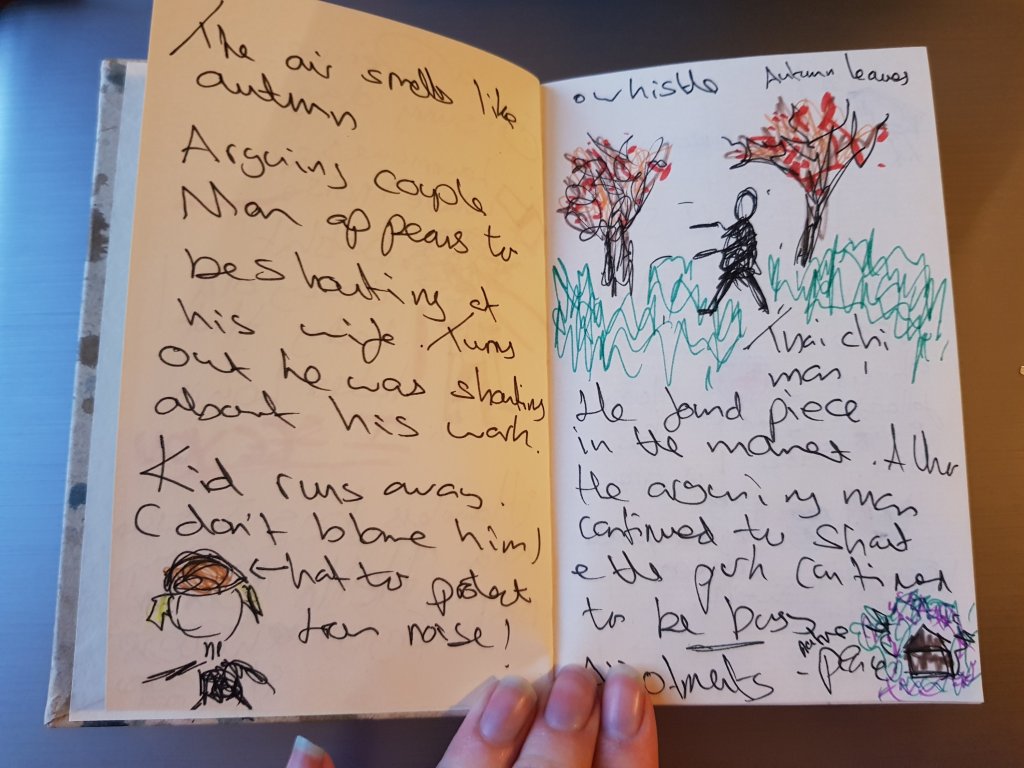 The air smells like
autumn
Arguing couple
Man appears to
be shouting at
his wife. Turns
out he was shouting
about his work.
Kid runs away.
(don't blame him)
hat to protect
from noise!
whistle
Autumn leaves
Thai chi
man!
He found piece
in the moment.
the arguing man
continued to shout
the park continued
to be busy
Allotments
- peace